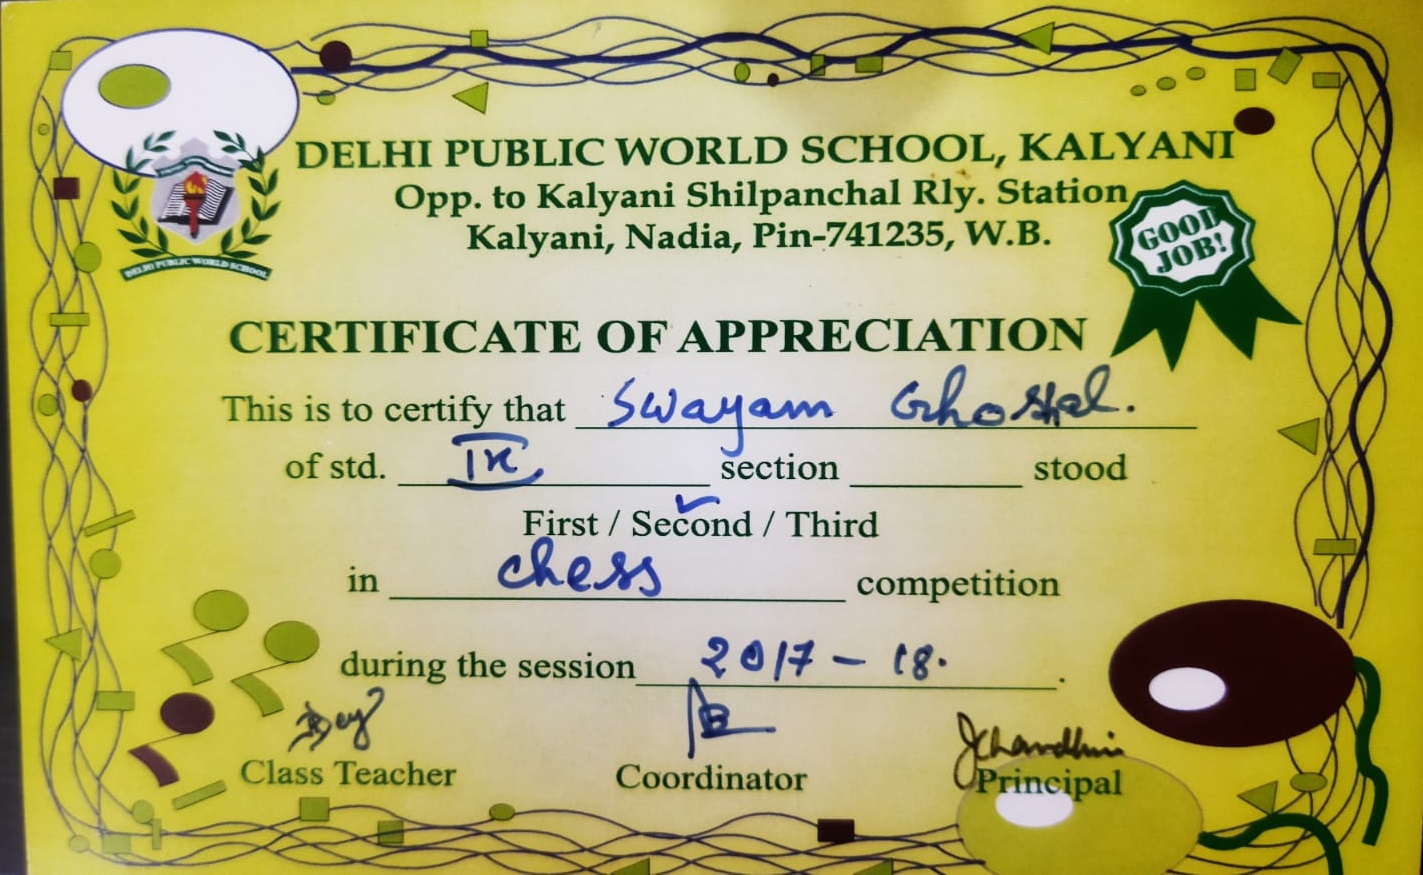 DELHI PUBLIC WORLD SCHOOL, KALYANI
Opp. to Kalyani Shilpanchal Rly. Station
Kalyani, Nadia, Pin-741235, W.B.
DELHI PUBLIC WORLD SCHOOL
GOOD
JOB!
CERTIFICATE OF APPRECIATION
This is to certify that Swayam Ghoshal.
of std. IX section stood
First / Second / Third
in chess competition
during the session 2017 - 18.
Class Teacher Coordinator Principal